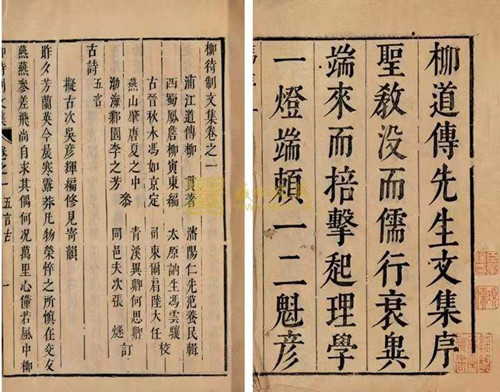 柳道傳先生文集序
聖教没而儒行衰異
端來而掊擊起理學
一燈端賴一二魁彦
柳待制文集卷之一
浦江道傳柳 貫著 瀋陽仁先范養民輯
西蜀鳳詹柳寅東編 太原訥生馮雲驤
古晉秋水馮如京定 甬東爾肩陸大任 校
燕山肇唐夏之中 叅 青溪異卿何思
渤海鄴園李之芳 同邑夫次張燧 訂
古詩
五言
擬古次吳彦暉編修見寄韻
昨夕芳蘭英今晨寒露莽凡物榮悴之所慎在交友
燕燕參差飛尚自求其偶何况萬里心僅若風中柳
柳待制文集 卷之一 五言古 一